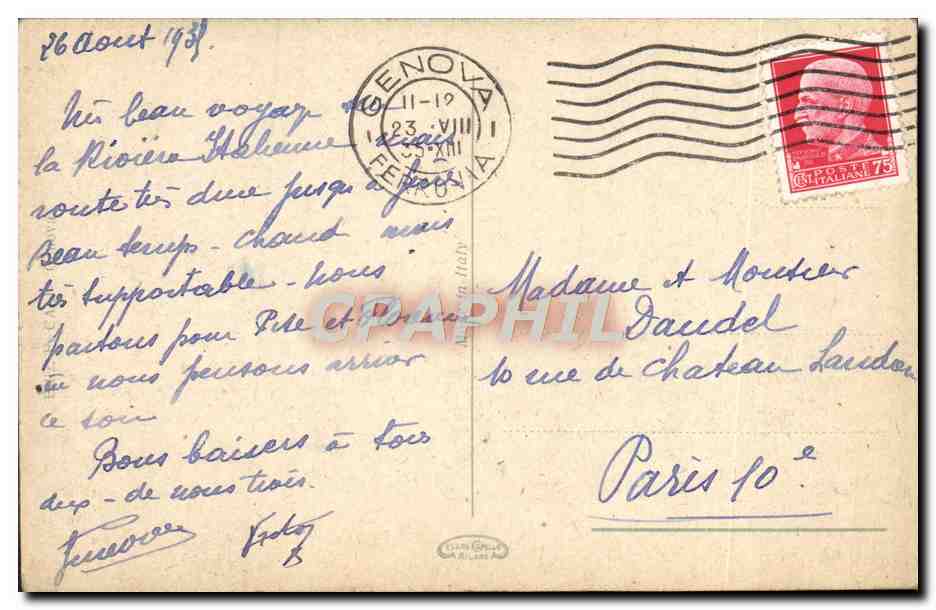 26 Aout 193
Très beau voyage
la Rivièra Italienne mais
route très dure jusqu'à
Beau temps - chaud mais
très supportable - nous
partons pour Pise et Florence
où nous pensons arriver
ce soir
Bons baisers à tous
deux - de nous trois.
GENOVA
11-12
23 VIII
XIII
FERROVIA
POSTE
ITALIANE
75
CENT
Made in Italy
CPAPHIL
Madame et Monsieur
Daudel
10 rue de Chateau Landon
Paris 10e
MILANO